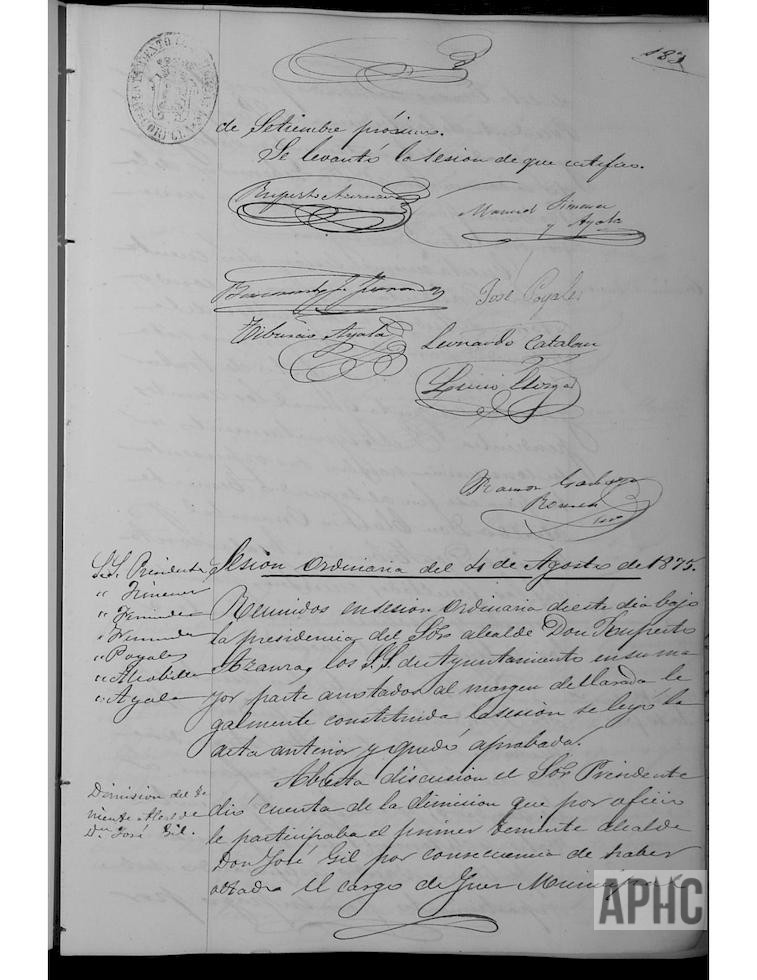 183
de Setiembre próximo.
Se levantó la sesion de que certifico.
Ruperto Azarra
Manuel Jimenez
y Ayala
José Pogales
Tiburcio Ayala
Leonardo Catalan
Ramon
Sesion Ordinaria del 4 de Agosto de 1875.
S.S. Presidente
" Jimenez
" Fernandez
" Fernandez
" Pogales
" Alcobilla
" Ayala
Reunidos en sesion Ordinaria de este dia bajo
la presidencia del Sor alcalde Don Ruperto
Azarra, los S.S. de Ayuntamiento en su ma
yor parte anotados al margen declarada le
galmente constituida la sesion se leyó la
acta anterior y quedó aprobada.
Dimision del te
niente Alcalde
Dn José Gil.
Abierta discusion el Sor Presidente
dió cuenta de la dimision que por oficio
le participaba el primer teniente alcalde
Don José Gil por consecuencia de haber
el cargo de Juez Municipal
APHC